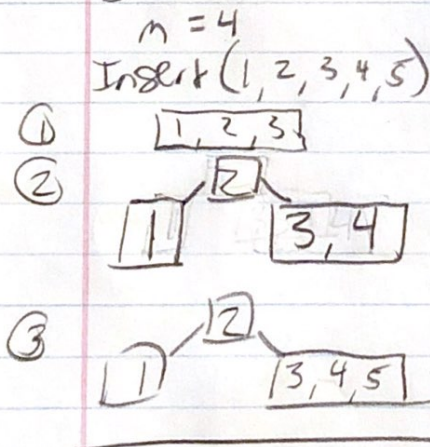 m = 4
Insert (1, 2, 3, 4, 5)
① 1, 2, 3
② 2
1 3, 4
③ 2
1 3, 4, 5